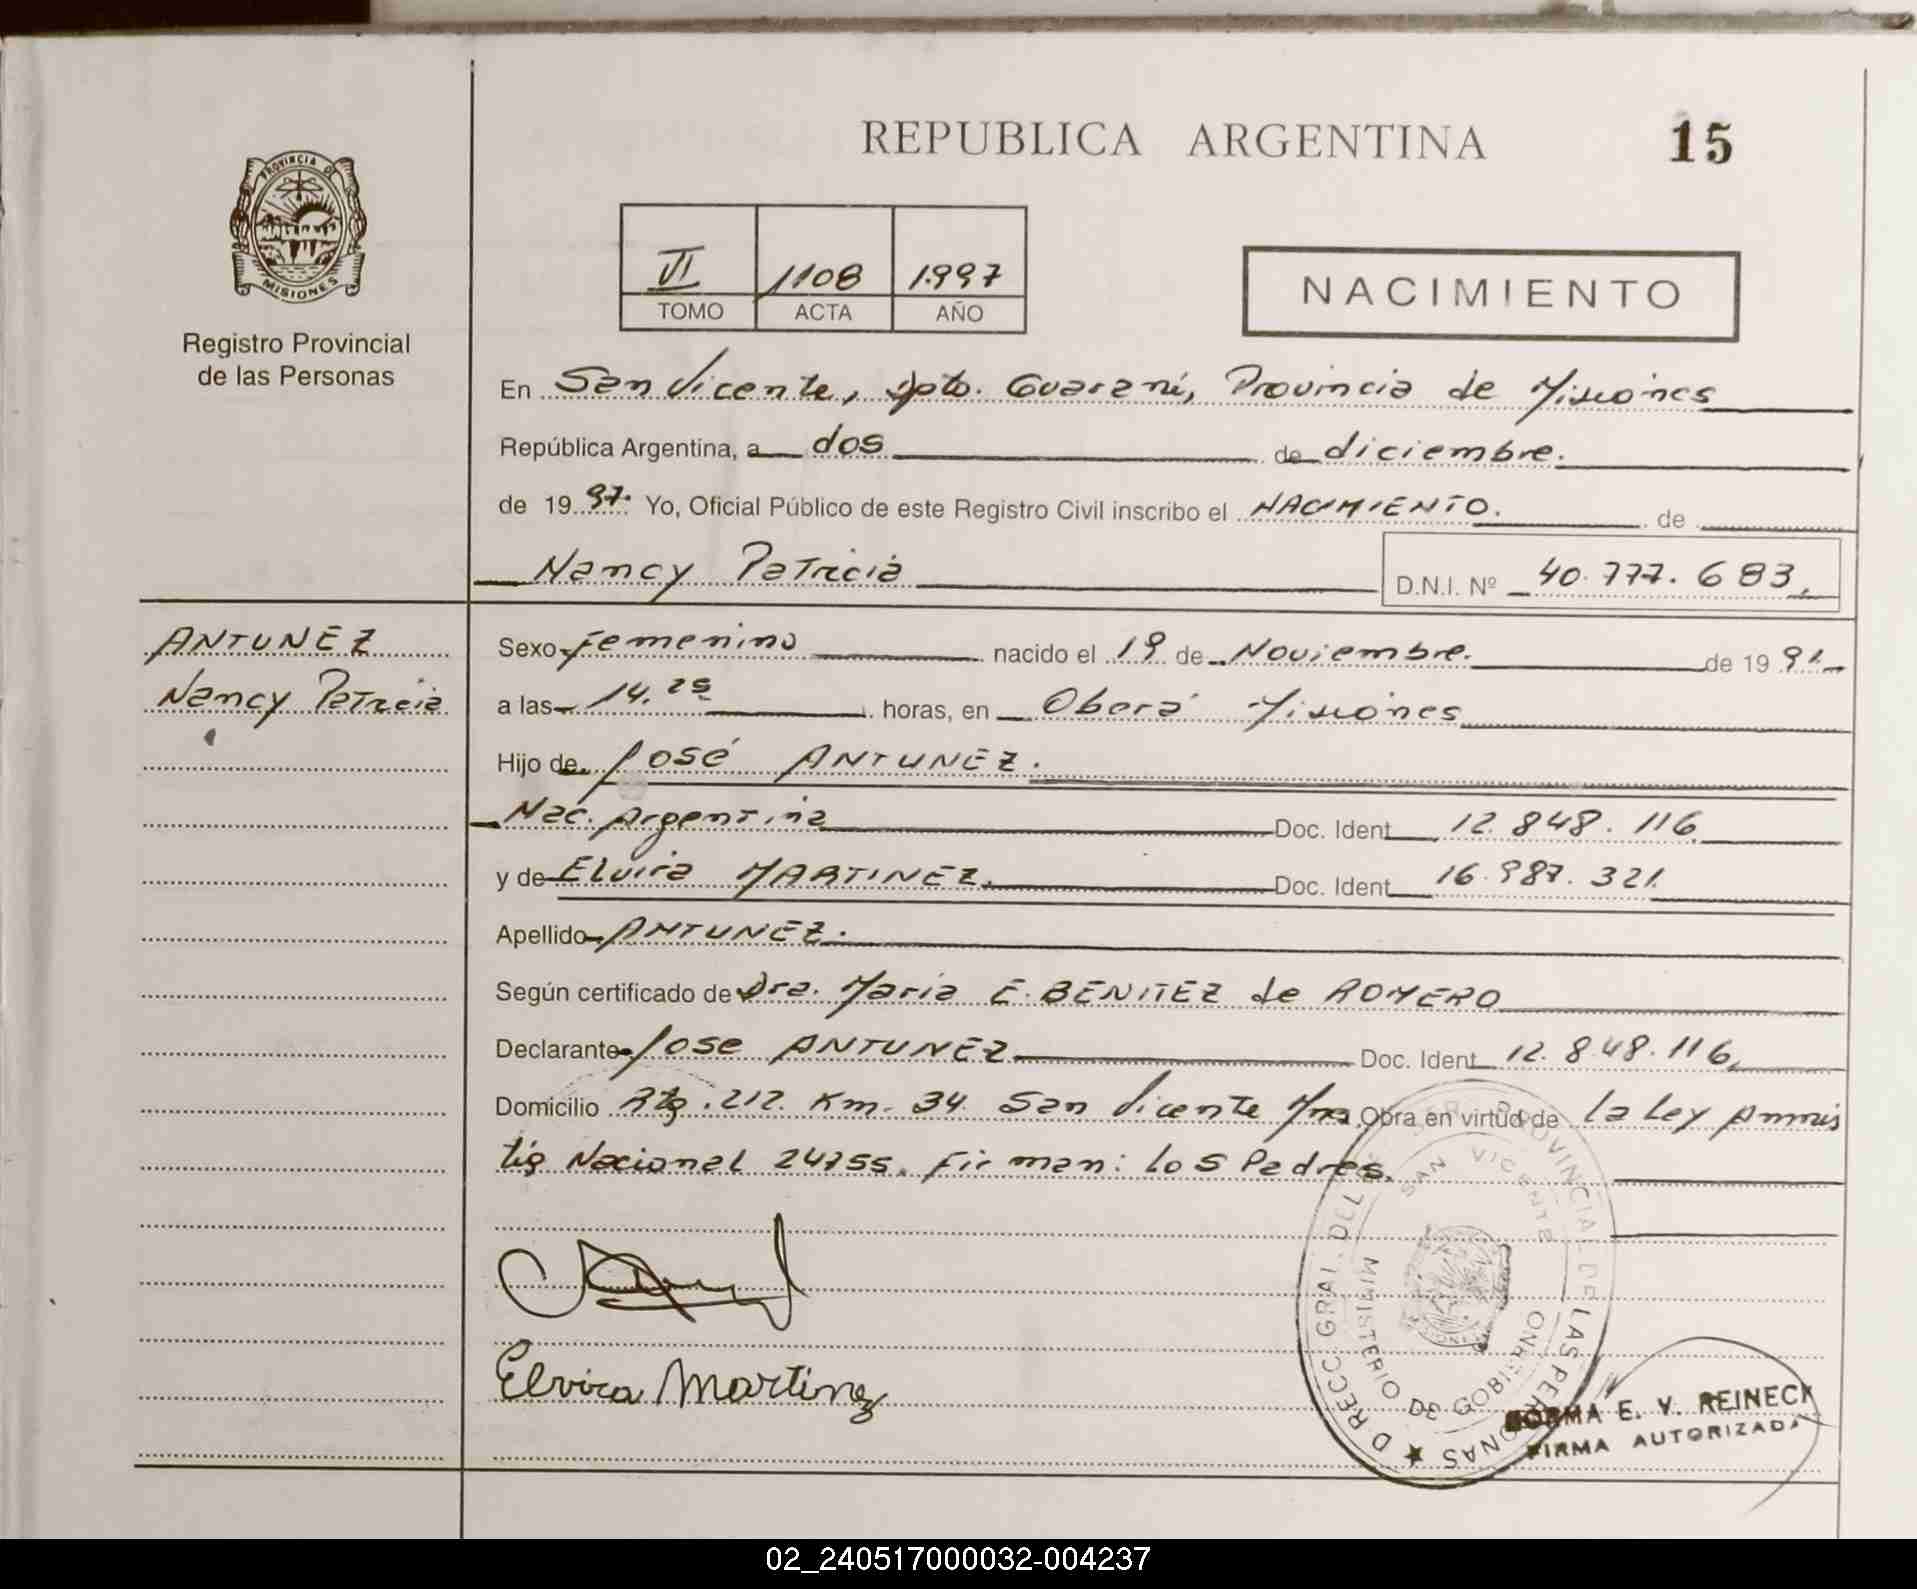 REPUBLICA ARGENTINA 15
PROVINCIA DE
MISIONES
Registro Provincial
de las Personas
VI 1108 1997
TOMO ACTA AÑO
NACIMIENTO
En San Vicente, Dpto. Guaraní, Provincia de Misiones
República Argentina, a dos de diciembre.
de 19 97. Yo, Oficial Público de este Registro Civil inscribo el NACIMIENTO. de
Nancy Patricia D.N.I. Nº 40.777.683,
ANTUNEZ
Nancy Patricia
Sexo Femenino nacido el 19 de Noviembre. de 19 91.
a las 14.25 horas, en Oberá Misiones
Hijo de José ANTUNEZ.
Nac. Argentina Doc. Ident 12.848.116
y de Elvira MARTINEZ. Doc. Ident 16.987.321.
Apellido ANTUNEZ.
Según certificado de Dra. María E. BENITEZ de ROMERO
Declarante Jose ANTUNEZ Doc. Ident 12.848.116,
Domicilio Rta. 212. Km. 34 San Vicente Mnes Obra en virtud de la Ley Amnis
tia Nacional 24755. Firman: los Padres.
Elvira Martinez
DIRECC. GRAL. DEL REG. PROVINCIAL DE LAS PERSONAS
SAN VICENTE
MINISTERIO DE GOBIERNO
NORMA E. V. REINECK
FIRMA AUTORIZADA
02_240517000032-004237